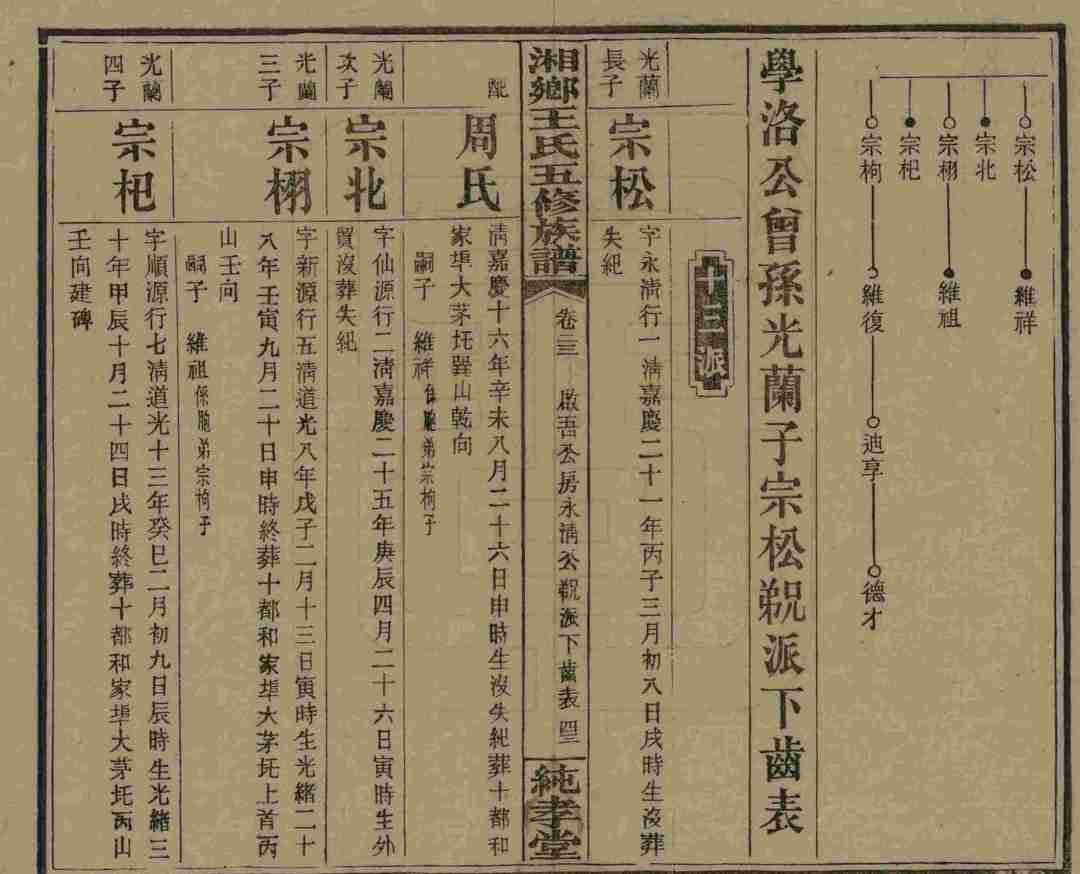 宗松 維祥
宗北
宗栩 維祖
宗杞
宗栒 維復 迪享 德才
學洛公曾孫光蘭子宗松貎派下齒表
派
光蘭
長子
宗松
字永淸行一淸嘉慶二十一年丙子三月初八日戌時生沒葬
失紀
湘鄉王氏五修族譜
卷二三
啟吾公房永淸公貎派下齒表
純孝堂
配
周氏
淸嘉慶十六年辛未八月二十六日申時生沒失紀葬十都和
家埠大茅坵巽山乾向
嗣子 維祥係胞弟宗栒子
光蘭
次子
宗北
字仙源行二淸嘉慶二十五年庚辰四月二十六日寅時生外
貿沒葬失紀
光蘭
三子
宗栩
字新源行五淸道光八年戊子二月十三日寅時生光緒二十
八年壬寅九月二十日申時終葬十都和家埠大茅坵上首丙
山壬向
嗣子 維祖係胞弟宗栒子
光蘭
四子
宗杞
字順源行七淸道光十三年癸巳二月初九日辰時生光緒三
十年甲辰十月二十四日戌時終葬十都和家埠大茅坵丙山
壬向建碑